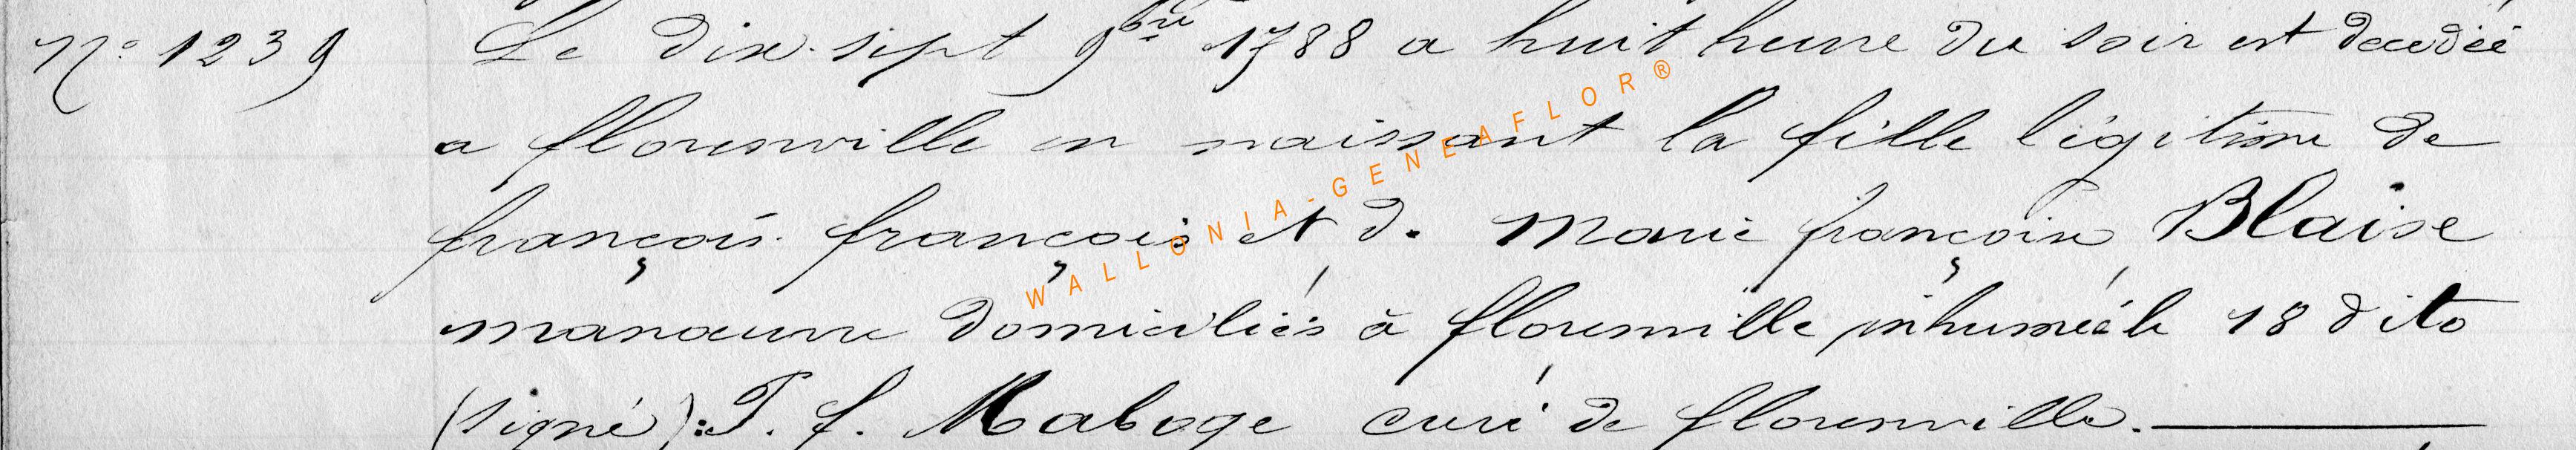 N° 1239 Le dix-sept 9bre 1788 a huit heure du soir est decedéé
a florenville en naissant la fille légitime de
françois françois et d. Marie françoise Blaise
manœuvre domiciliés à florenville inhuméé le 18 dito
(signé): T. f. Maboge curé de florenville.
WALLONIA-GENEAFLOR®